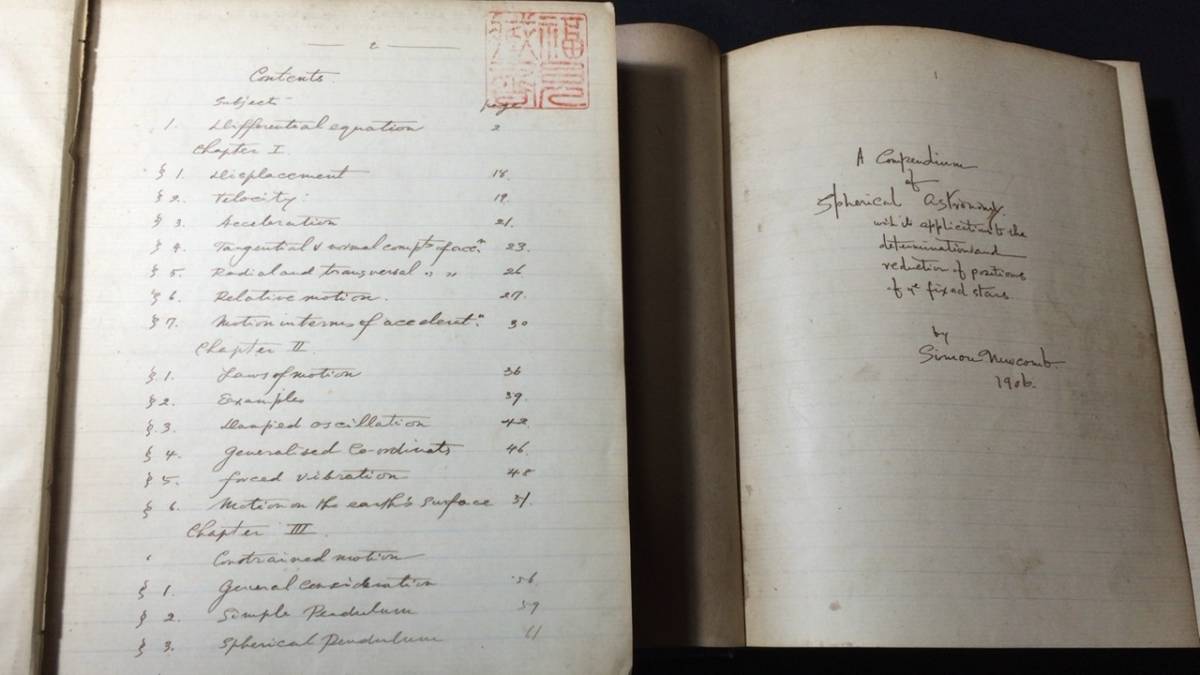 2
Contents.
Subject page
1. Differential equation 2
Chapter I.
§ 1. Displacement 18.
§ 2. Velocity. 19.
§ 3. Acceleration 21.
§ 4. Tangential & normal compts of accn. 23.
§ 5. Radial and transversal " " 26
§ 6. Relative motion. 27.
§ 7. Motion in terms of accelerat.n 30
Chapter II.
§. 1. Laws of motion 36
§ 2. Examples 39.
§. 3. Damped oscillation 42.
§ 4. Generalised Co-ordinats 46.
§ 5. forced vibration 48
§ 6. Motion on the earth's surface 51.
Chapter III.
Constrained motion
§ 1. General consideration 56
§ 2. Simple Pendulum 59
§ 3. Spherical Pendulum 61
1
A Compendium
of
Spherical Astronomy.
with its applications to the
determination and
reduction of positions
of ye fixed stars.
by
Simon Newcomb.
1906.